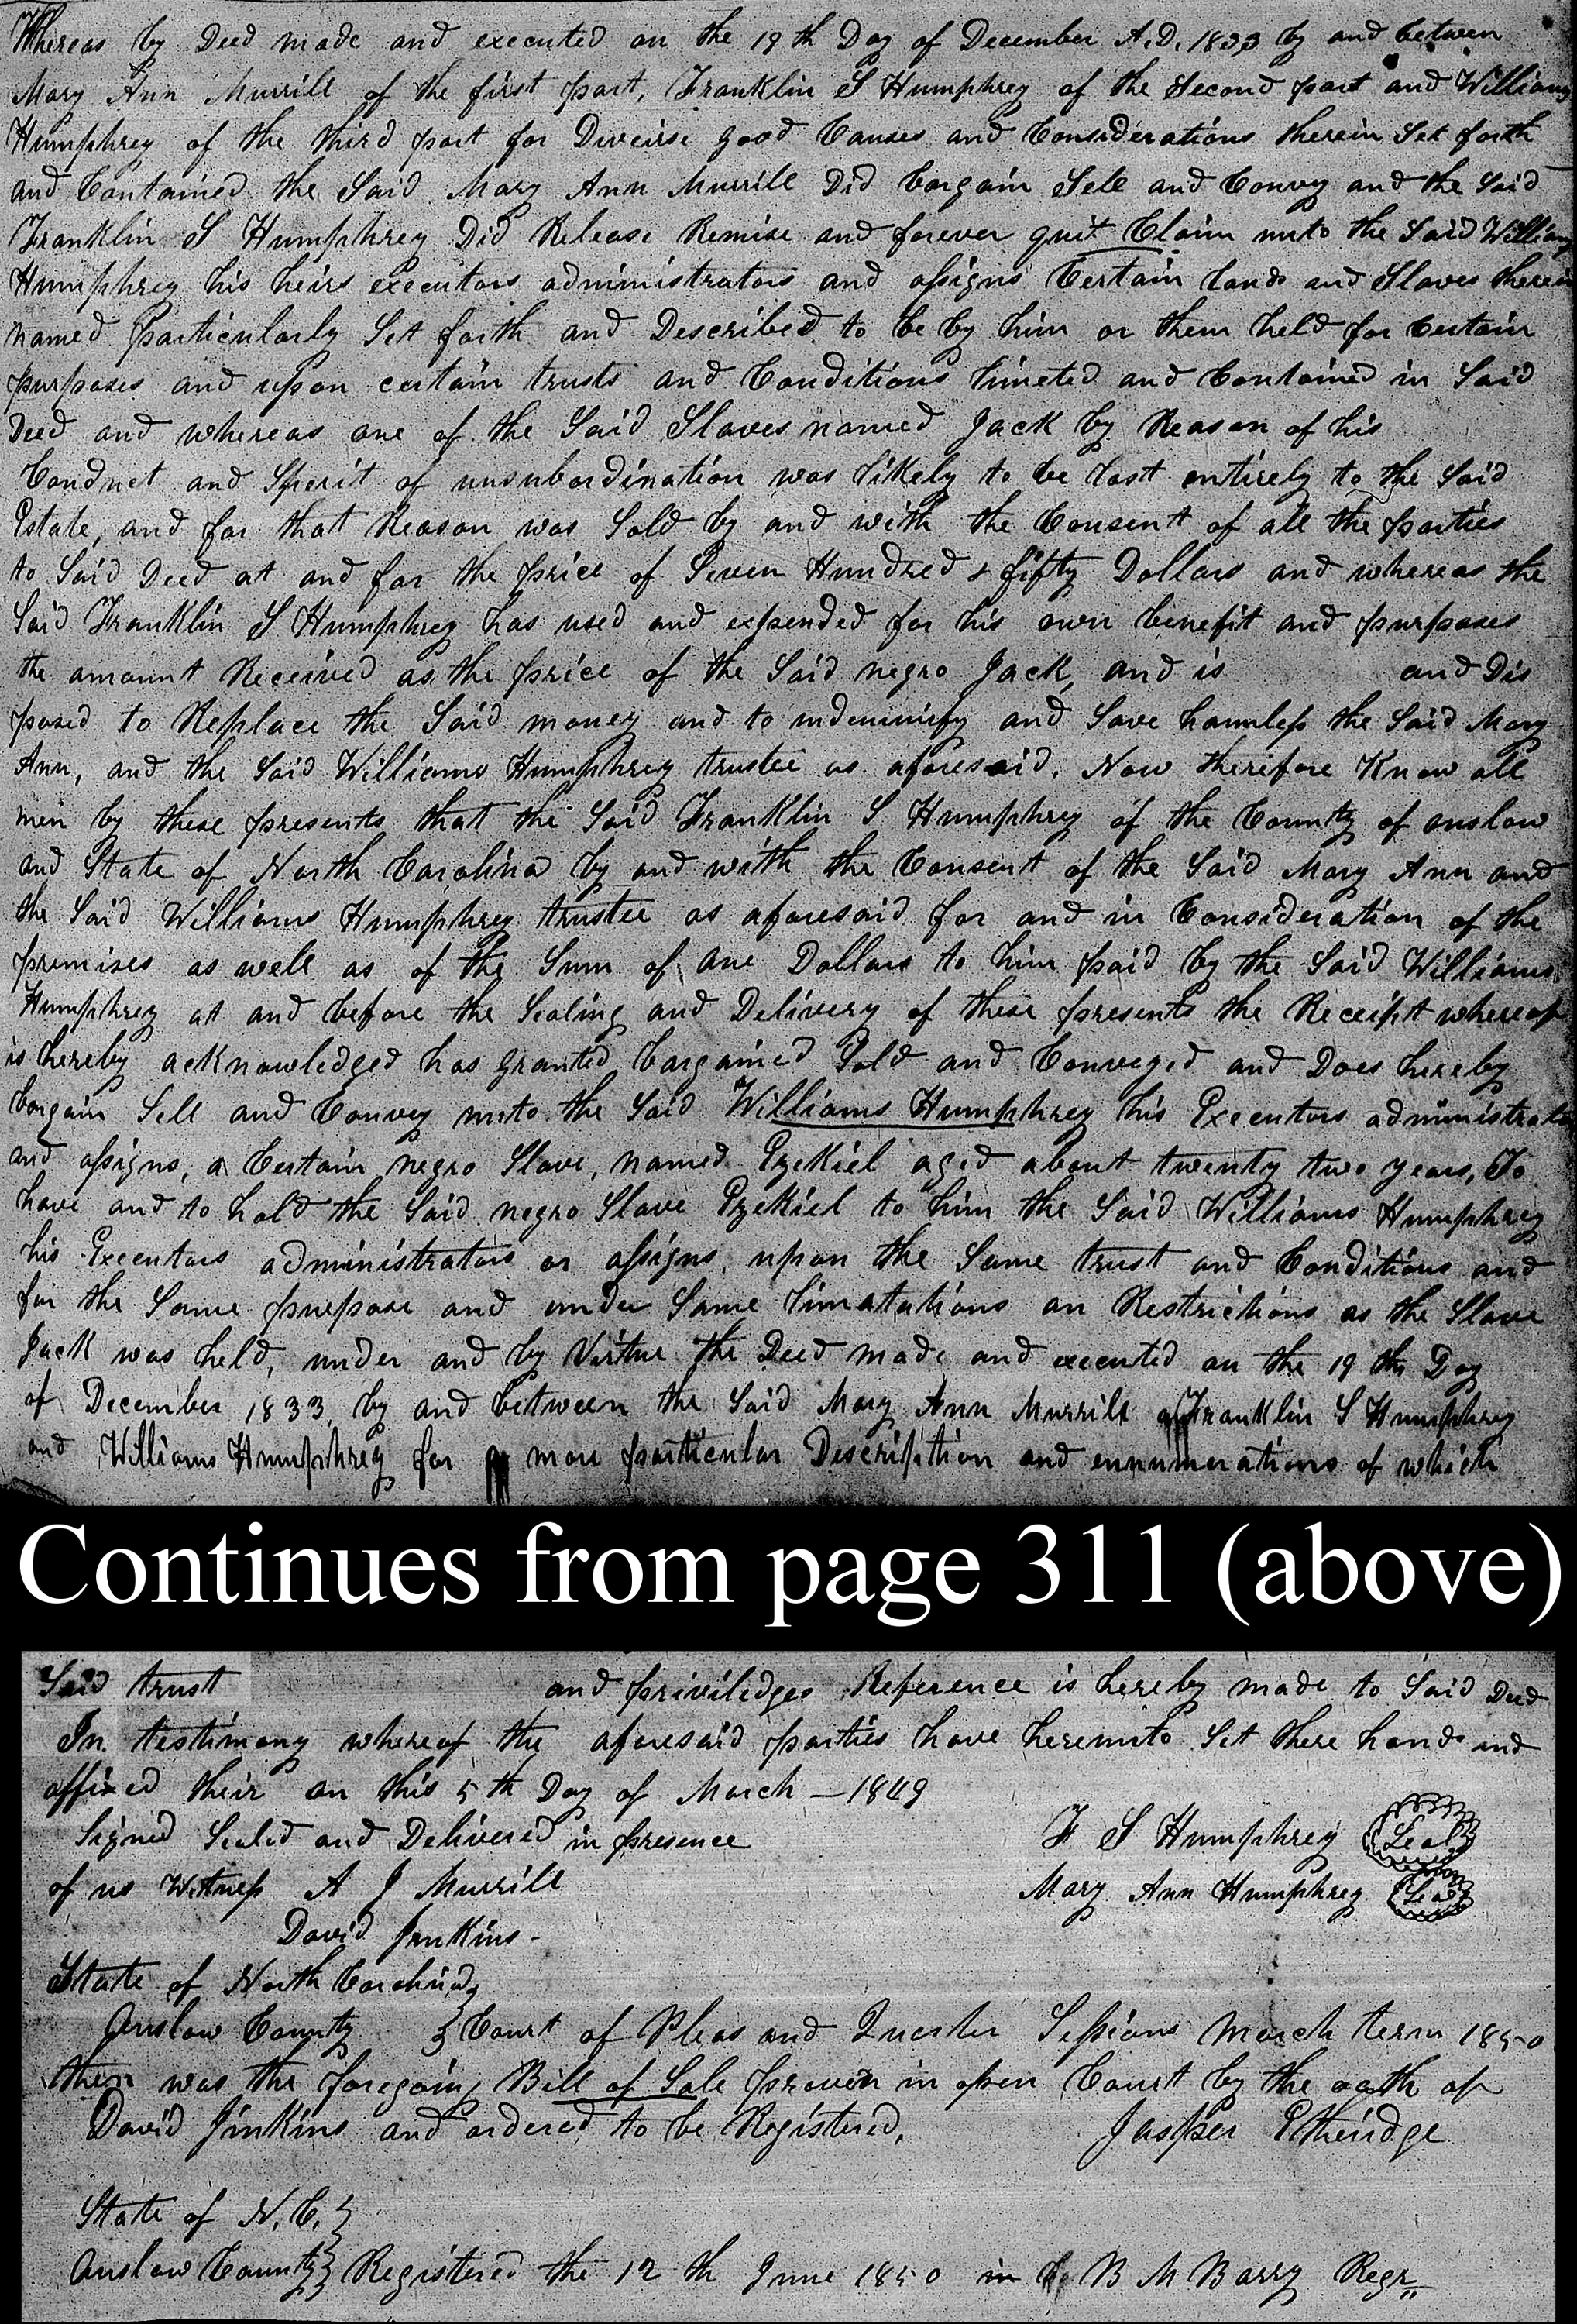 Whereas by Deed made and executed on the 19th Day of December A.D. 1833 by and between
Mary Ann Murrill of the first part, Franklin S Humphrey of the Second part and Williams
Humphrey of the third part for Diveirse good Causes and Considerations therein Set forth
and Contained the Said Mary Ann Murrill Did bargain Sell and Convey and the Said
Franklin S Humphrey Did Release Remise and forever quit Claim unto the Said Williams
Humphrey his heirs executors administrators and assigns Certain lands and Slaves therein
named particularly Set forth and Described to be by him or them held for Certain
purposes and upon certain trusts and Conditions limeted and Contained in Said
Deed and whereas one of the Said Slaves named Jack by Reason of his
Conduct and Spirit of unsubordination was likely to be lost entirely to the Said
Estate, and for that Reason was Sold by and with the Consent of all the parties
to Said Deed at and for the price of Seven Hundred & fifty Dollars and whereas the
Said Franklin S Humphrey has used and expended for his own benefit and purposes
the amount Received as the price of the Said negro Jack, and is and Dis
posed to Replace the Said money and to indemnify and Save harmless the Said Mary
Ann, and the Said Williams Humphrey trustee as aforesaid. Now therefore Know all
men by these presents that the Said Franklin S Humphrey of the County of onslow
and State of North Carolina by and with the Consent of the Said Mary Ann and
the Said Williams Humphrey trustee as aforesaid for and in Consideration of the
premises as well as of the Sum of one Dollars to him paid by the Said Williams
Humphrey at and before the Sealing and Delivery of these presents the Receipt whereof
is hereby acknowledged has granted bargained Sold and Conveyed and Does hereby
bargain Sell and Convey unto the Said Williams Humphrey his Executors administrators
and assigns, a Certain negro Slave, named Ezekiel aged about twenty two years, To
have and to hold the Said negro Slave Ezekiel to him the Said Williams Humphrey
his Executors administrators or assigns, upon the Same trust and Conditions and
for the Same purpose and under Same limatations an Restrictions as the Slave
Jack was held, under and by Virtue the Deed made and executed on the 19th Day
of December 1833, by and between the Said Mary Ann Murrill Franklin S Humphrey
and Williams Humphrey for more particular Description and ennumerations of which
Continues from page 311 (above)
Said trust and priviledges Reference is hereby made to Said Deed
In testimony whereof the aforesaid parties have hereunto Set there hands and
affixed their on this 5th Day of March — 1849
Signed Sealed and Delivered in presence F S Humphrey Seal
of us Witness A J Murrill Mary Ann Humphrey Seal
David Jenkins -
State of North Carolina
Onslow County } Court of Pleas and Quarter Sessions March term 1850
then was the foregoing Bill of Sale proven in open Court by the oath of
David Jinkins and ordered to be Registered, Jasper Etheridge
State of N, C, }
Onslow County } Registered the 12th June 1850 in B M Barry Regr